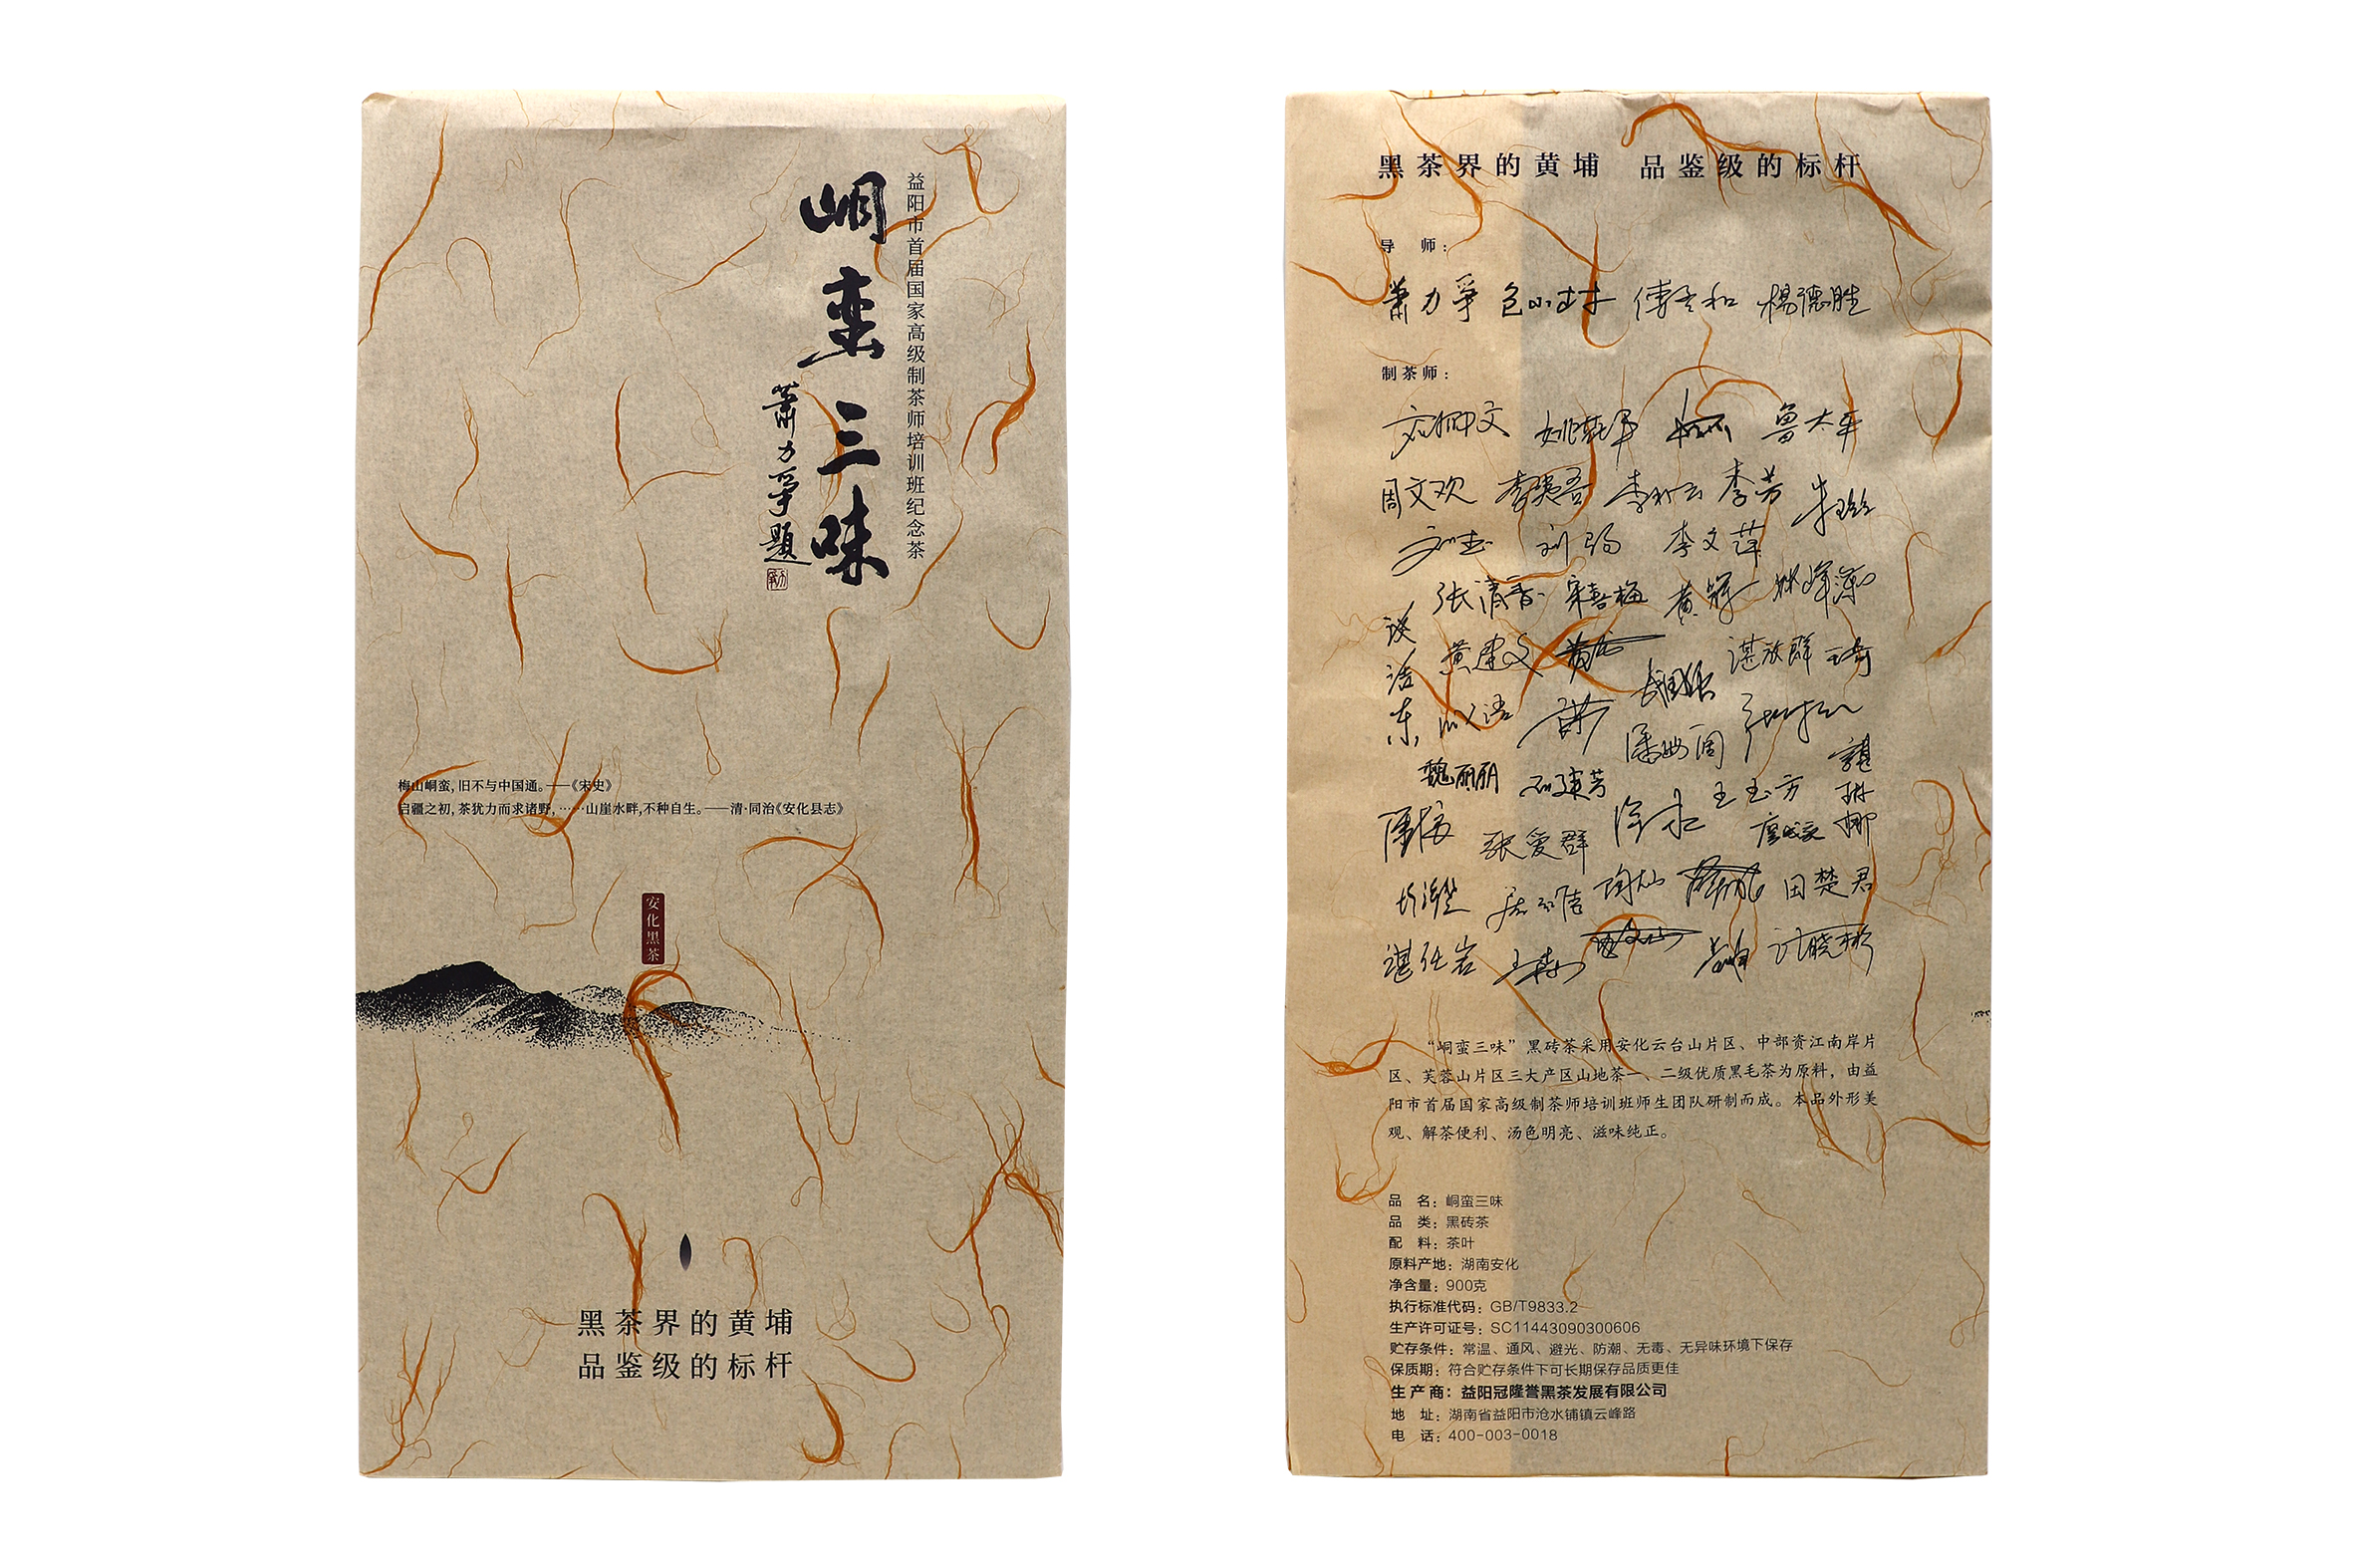 益阳市首届国家高级制茶师培训班纪念茶
峒蛮三味
萧力争题
梅山峒蛮，旧不与中国通。——《宋史》
启疆之初，茶犹力而求诸野，……山崖水畔，不种自生。——清·同治《安化县志》
安化黑茶
黑茶界的黄埔
品鉴级的标杆
黑茶界的黄埔 品鉴级的标杆
导 师：
萧力争 包小村 傅冬和 楊德胜
制茶师：
鲁太平
周文欢 李芳
李文萍
张清香 宋喜梅
黄建文 谌放群
魏丽丽
张爱群 王玉方
田楚君
谌任岩 计晓彬
“峒蛮三味”黑砖茶采用安化云台山片区、中部资江南岸片
区、芙蓉山片区三大产区山地茶一、二级优质黑毛茶为原料，由益
阳市首届国家高级制茶师培训班师生团队研制而成。本品外形美
观、解茶便利、汤色明亮、滋味纯正。
品 名：峒蛮三味
品 类：黑砖茶
配 料：茶叶
原料产地：湖南安化
净含量：900克
执行标准代码：GB/T9833.2
生产许可证号：SC11443090300606
贮存条件：常温、通风、避光、防潮、无毒、无异味环境下保存
保质期：符合贮存条件下可长期保存品质更佳
生 产 商：益阳冠隆誉黑茶发展有限公司
地 址：湖南省益阳市沧水铺镇云峰路
电 话：400-003-0018